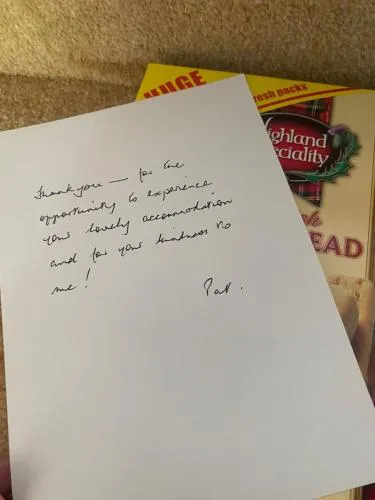 HUGE
fresh packs
Highland
Speciality
EAD
Thank you — for the
opportunity to experience
your lovely accommodation
and for your kindness to
me!
Pat.